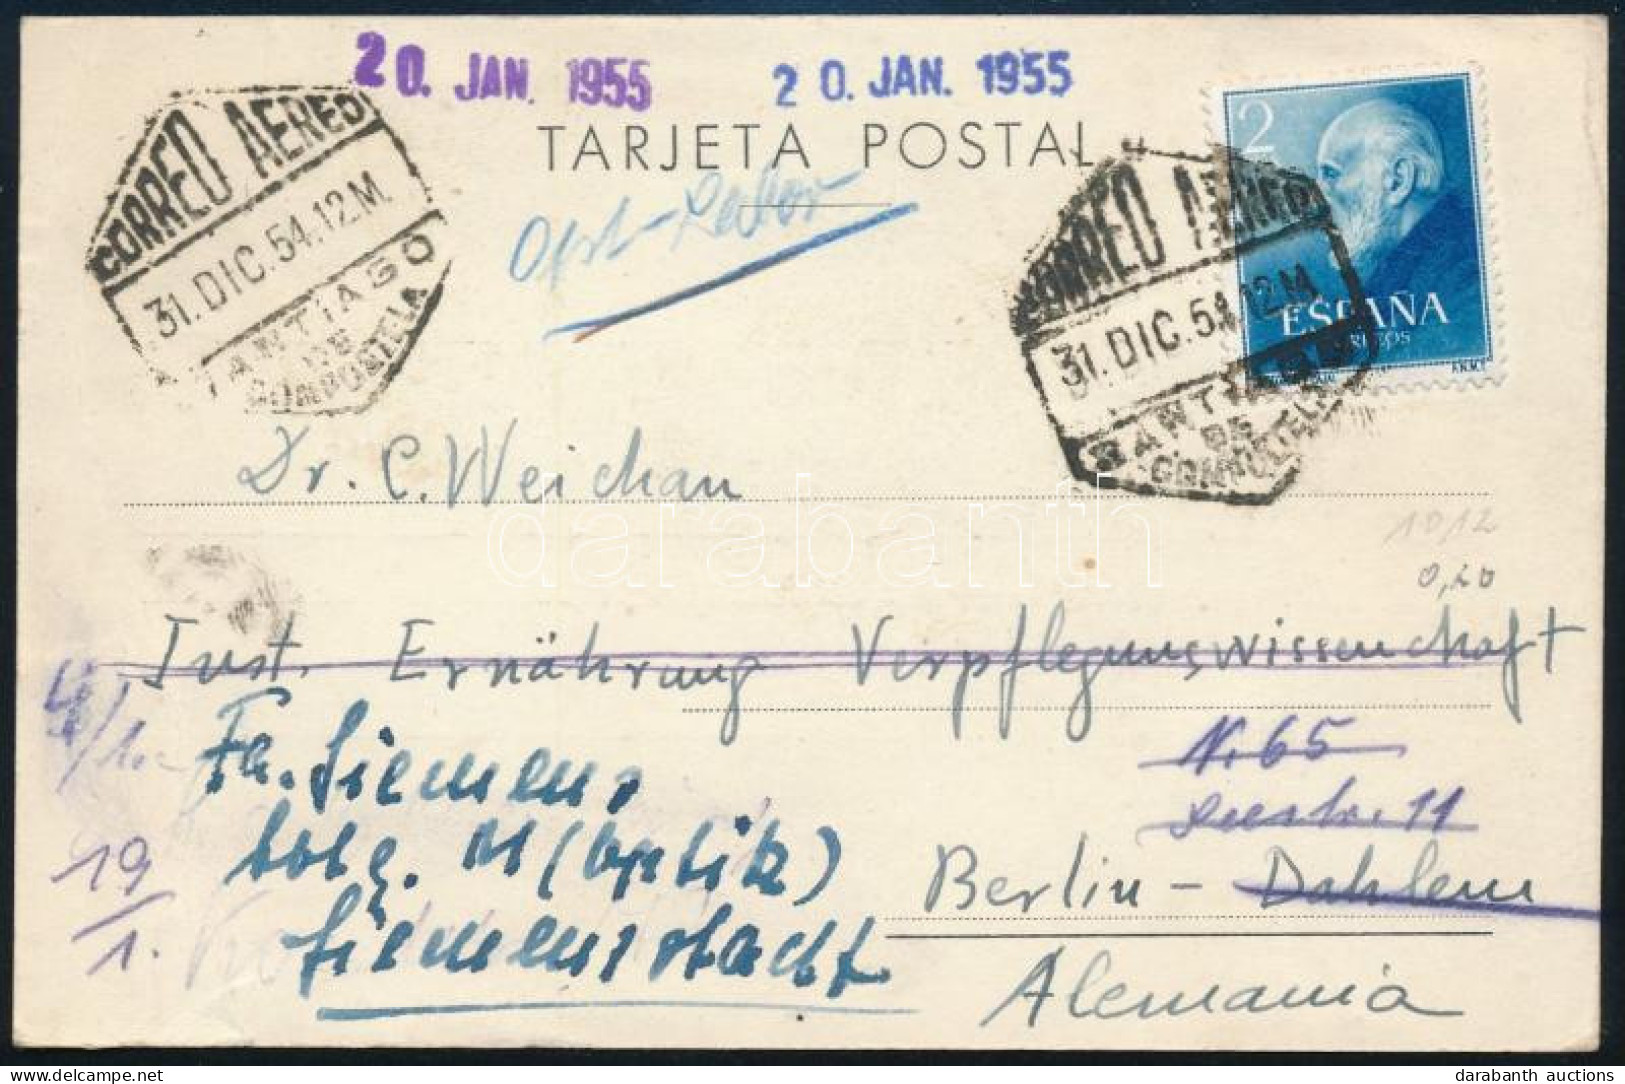 20. JAN. 1955
20. JAN. 1955
TARJETA POSTAL
CORREO AEREO
31. DIC. 54. 12 M.
SANTIAGO
DE
COMPOSTELA
CORREO AEREO
31. DIC. 54. 12 M.
SANTIAGO
DE
COMPOSTELA
2
ESPAÑA
CORREOS
Dr. C. Weichan
darabanth
1012
0,20
Inst. Ernährung Verpflegungswissenschaft
Fa. Siemens,
N. 65
Seestr. 11
M (Optik)
Siemensstadt
19/1.
Berlin - Dahlem
Alemania
darabanth auctions